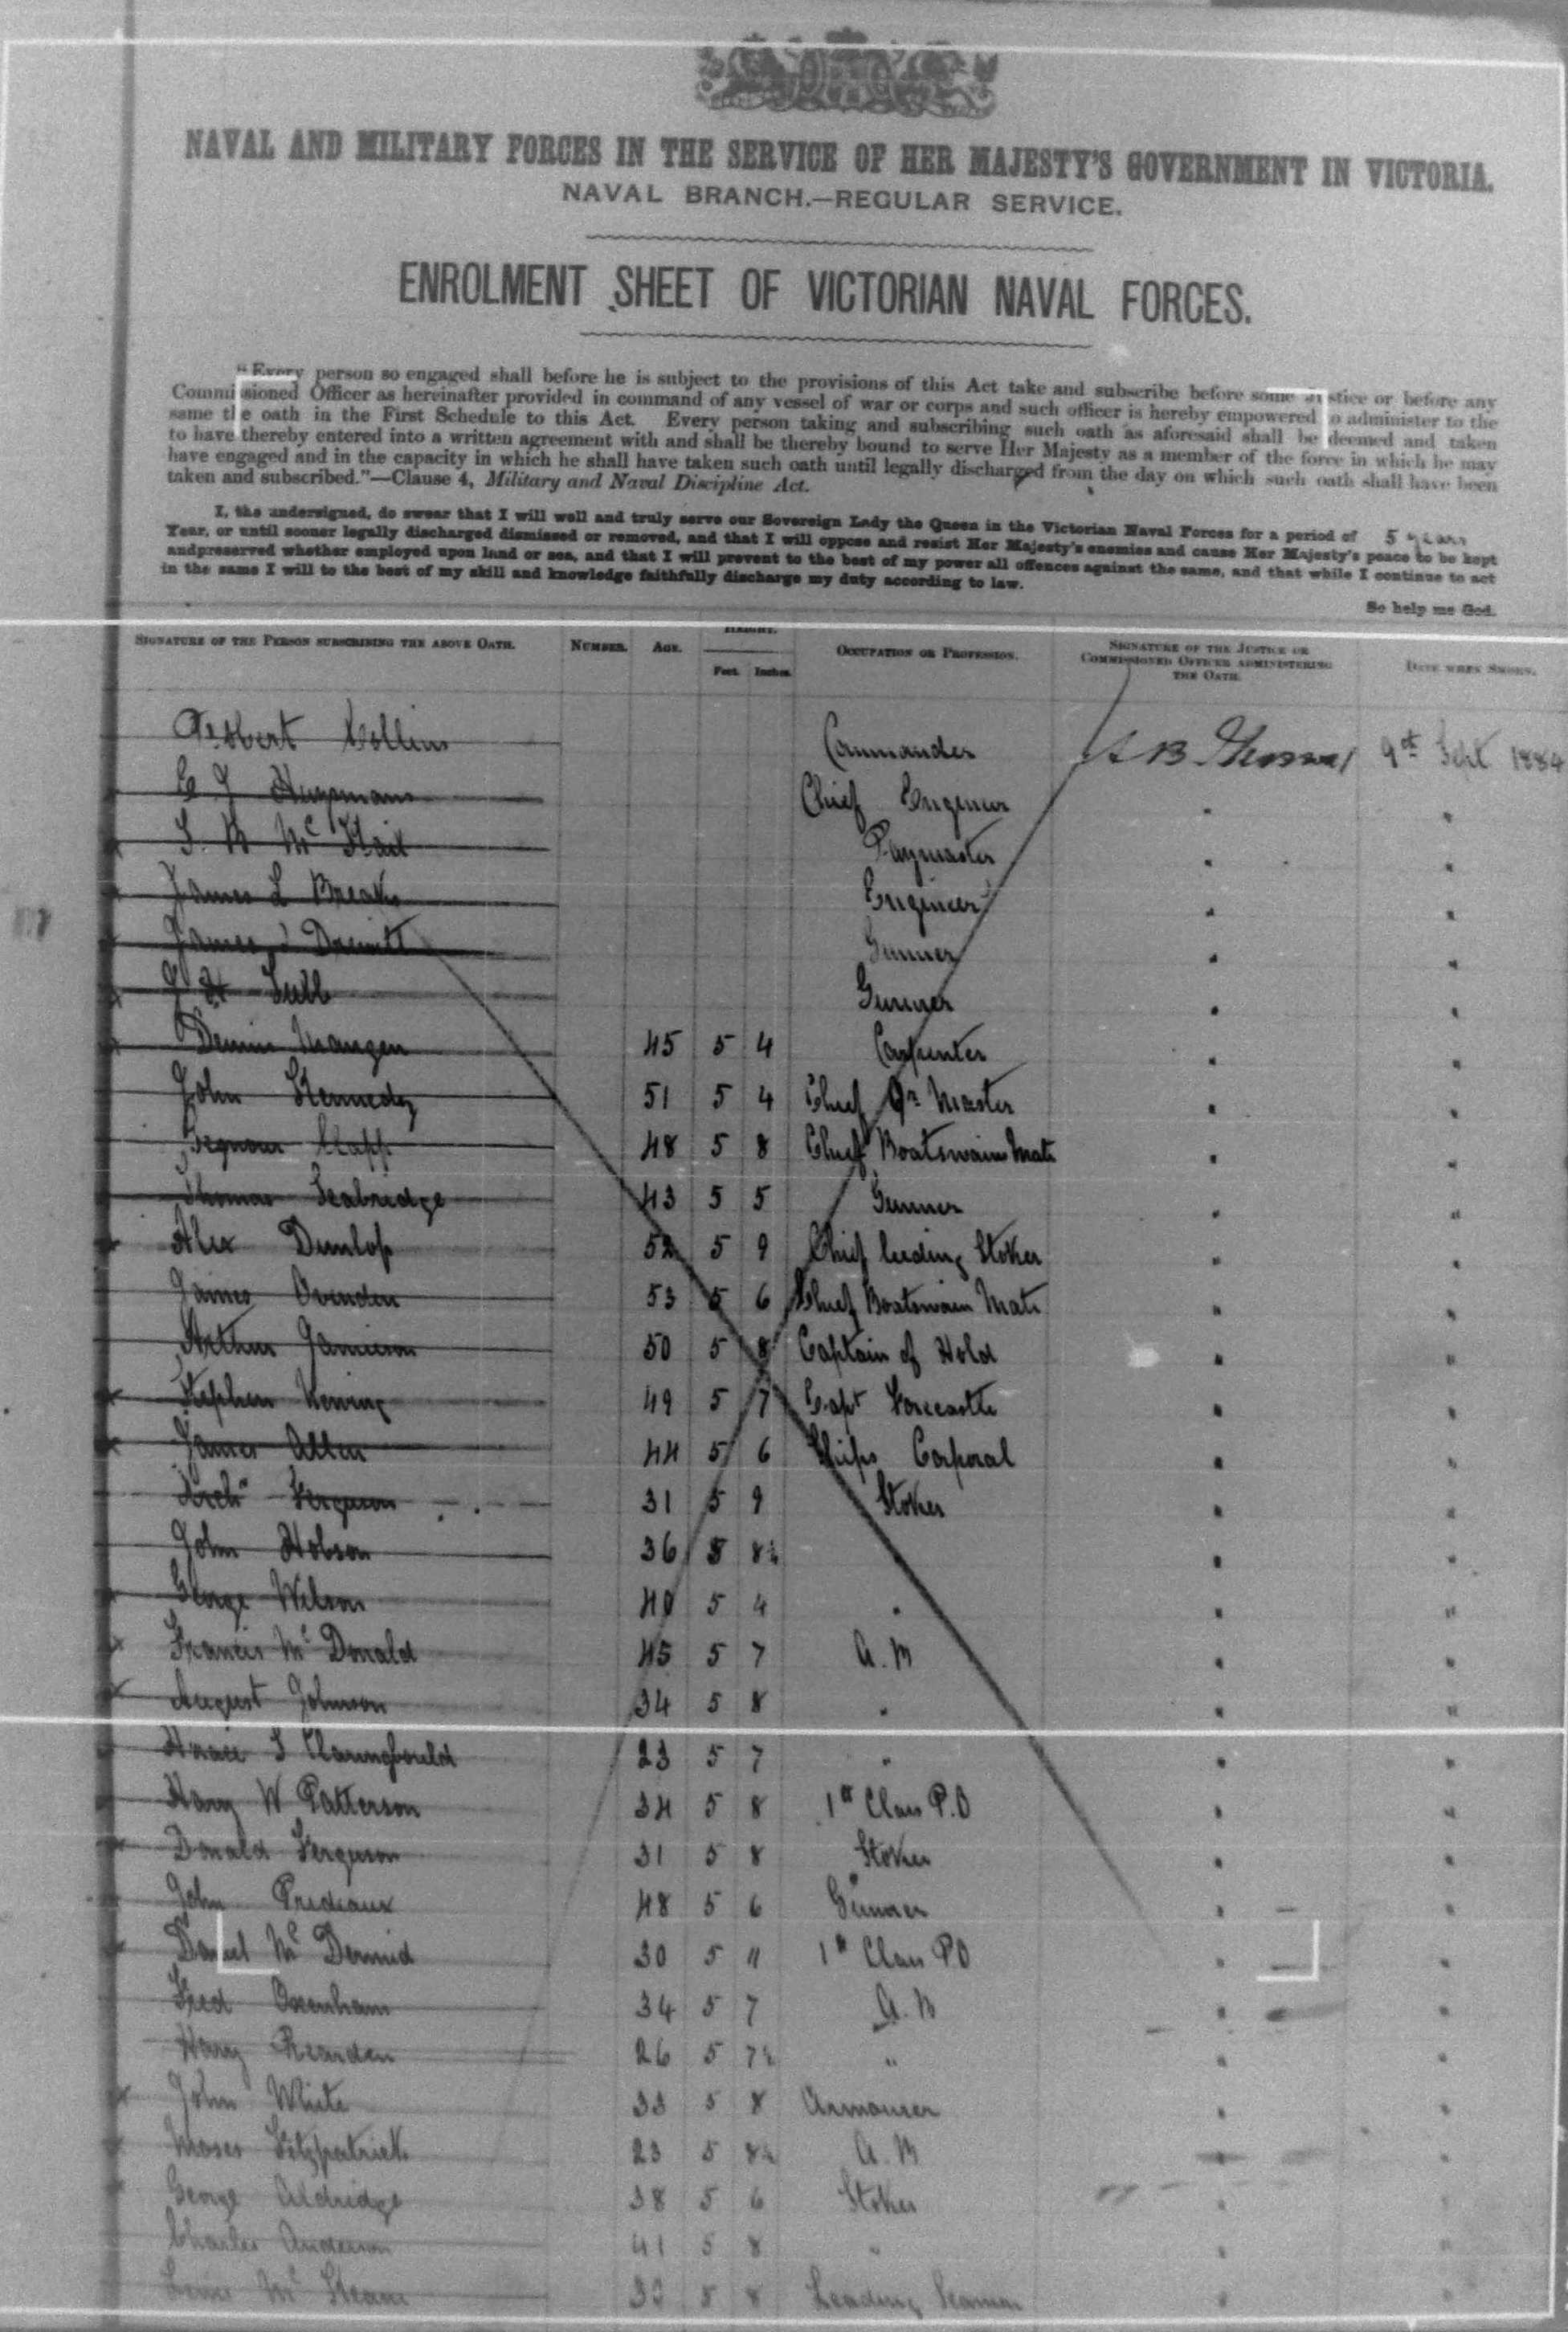 NAVAL AND MILITARY FORCES IN THE SERVICE OF HER MAJESTY'S GOVERNMENT IN VICTORIA.
NAVAL BRANCH.—REGULAR SERVICE.
ENROLMENT SHEET OF VICTORIAN NAVAL FORCES.
"Every person so engaged shall before he is subject to the provisions of this Act take and subscribe before some Justice or before any
Commissioned Officer as hereinafter provided in command of any vessel of war or corps and such officer is hereby empowered to administer to the
same the oath in the First Schedule to this Act. Every person taking and subscribing such oath as aforesaid shall be deemed and taken
to have thereby entered into a written agreement with and shall be thereby bound to serve Her Majesty as a member of the force in which he may
have engaged and in the capacity in which he shall have taken such oath until legally discharged from the day on which such oath shall have been
taken and subscribed."—Clause 4, Military and Naval Discipline Act.
I, the undersigned, do swear that I will well and truly serve our Sovereign Lady the Queen in the Victorian Naval Forces for a period of 5 years
Year, or until sooner legally discharged dismissed or removed, and that I will oppose and resist Her Majesty's enemies and cause Her Majesty's peace to be kept
andpreserved whether employed upon land or sea, and that I will prevent to the best of my power all offences against the same, and that while I continue to act
in the same I will to the best of my skill and knowledge faithfully discharge my duty according to law.
So help me God.
SIGNATURE OF THE PERSON SUBSCRIBING THE ABOVE OATH. NUMBER. AGE. HEIGHT. Feet. Inches. OCCUPATION OR PROFESSION. SIGNATURE OF THE JUSTICE OR COMMISSIONED OFFICER ADMINISTERING THE OATH. DATE WHEN SWORN.
Collins Commander A B Thomas 9th Sept 1884
Chief Engineer " "
Paymaster " "
James L Breaks Engineer " "
James Gunner " "
Tubb Gunner " "
Dennis Mangan 45 5 4 Carpenter " "
John Kennedy 51 5 4 Chief Qr Master " "
Seymour Clapp 48 5 8 Chief Boatswains Mate " "
Thomas Seabridge 43 5 5 Gunner " "
Alex Dunlop 52 5 9 Chief leading Stoker " "
James Ovenden 53 5 6 Chief Boatswain Mate " "
Arthur Jamieson 50 5 8 Captain of Hold " "
Stephen 49 5 7 Capt Forecastle " "
James Allen 44 5 6 Ships Corporal " "
Archd Ferguson 31 5 9 Stoker " "
John Hobson 36 5 8½ " "
George Wilson 40 5 4 " " "
Francis Mc Donald 45 5 7 A.B " "
August Johnson 34 5 8 " " "
Claringbould 23 5 7 " " "
Harry W Patterson 34 5 8 1st Class P.O " "
Donald Ferguson 31 5 8 Stoker " "
John Prideaux 48 5 6 Gunner " "
Daniel Mc Dermid 30 5 11 1st Class PO " "
Fred Oxenham 34 5 7 A.B " "
Harry Rearden 26 5 7½ " " "
John White 33 5 8 Armourer " "
Moses Fitzpatrick 23 5 8½ A.B " "
George Aldridge 38 5 6 Stoker " "
Charles Anderson 41 5 8 " " "
5 8 Leading Seaman " "